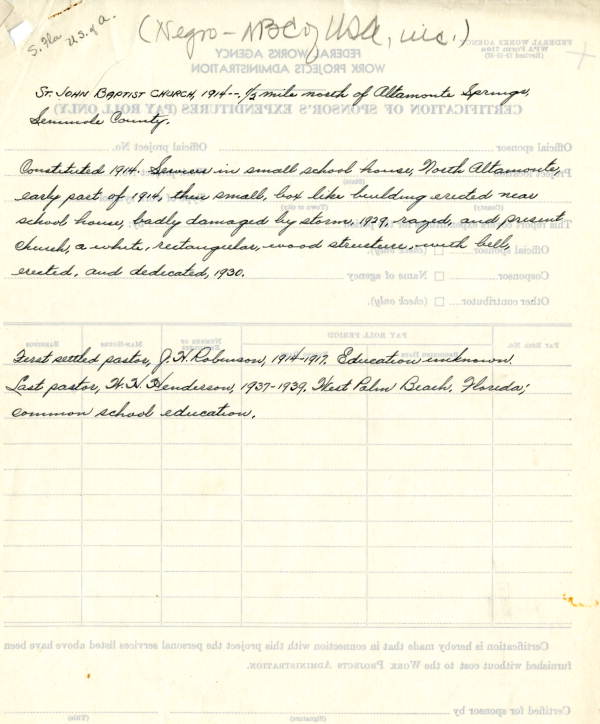 S. Fla
U.S. of A.
(Negro - NBC of USA, inc.)
FEDERAL WORKS AGENCY
WORK PROJECTS ADMINISTRATION
FEDERAL WORKS AGENCY
WPA Form
CERTIFICATION OF SPONSOR'S EXPENDITURES (PAY ROLL ONLY)
ST. JOHN BAPTIST CHURCH, 1914--. 1/2 mile north of Altamonte Springs,
Seminole County.
Official sponsor
Official project No.
Constituted 1914. Services in small school house, North Altamonte,
early part of 1914, then small, box like building erected near
school house, badly damaged by storm, 1929, razed, and present
church, a white, rectangular, wood structure, with bell,
erected, and dedicated, 1930.
Official sponsor (check only).
Cosponsor Name of agency
Other contributor (check only).
PAY ROLL PERIOD
PAY ROLL NO.
NUMBER OF
MAN-HOURS
EARNINGS
First settled pastor, J. H. Robinson, 1914-1917. Education unknown.
Last pastor, H. N. Henderson, 1937-1939. West Palm Beach, Florida;
common school education.
Certification is hereby made that in connection with this project the personal services listed above have been
furnished without cost to the WORK PROJECTS ADMINISTRATION.
Certified for sponsor by
(Signature)
(Title)